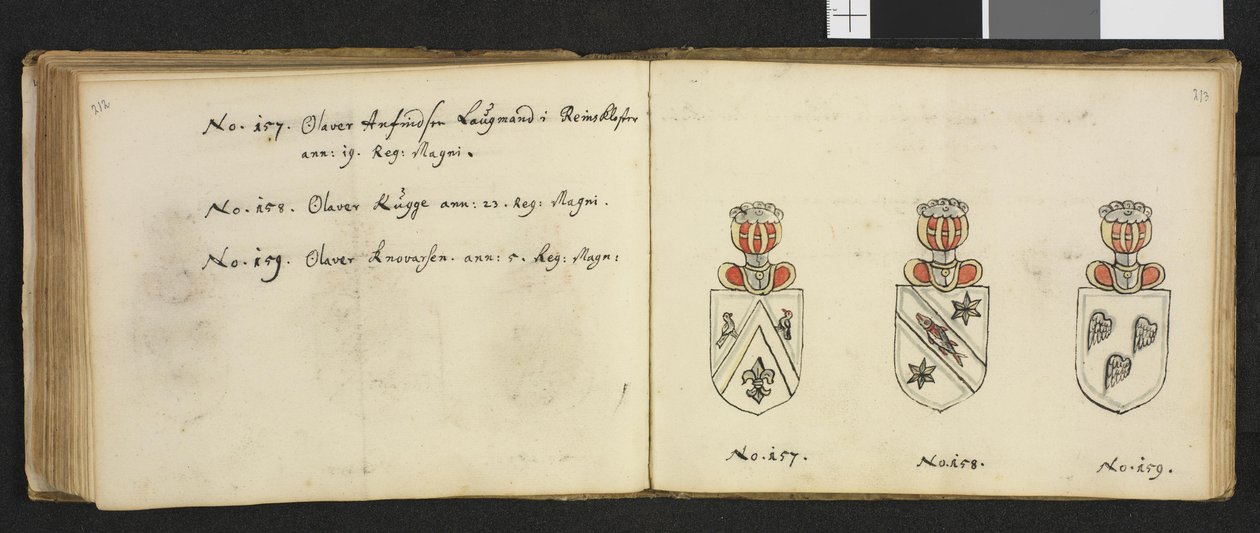 212
No. 157. Olaver Anfindsen Laugmand i Reinskloster
ann: 19. Reg: Magni.
No. 158. Olaver Kugge ann: 23. Reg: Magni.
No. 159. Olaver Knovarsen. ann: 5. Reg: Magn:
213
No. 157.
No. 158.
No. 159.